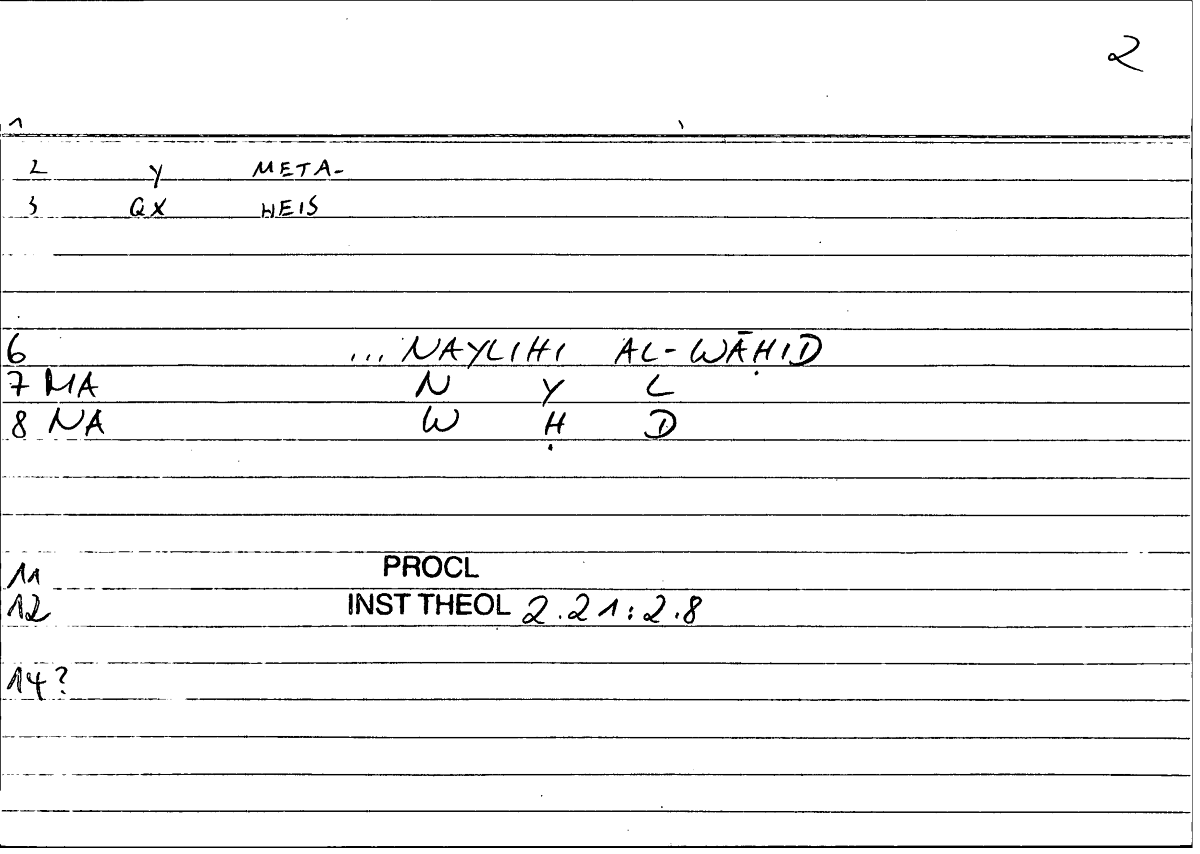 2
1
2 Y META-
3 QX HEIS
6 ... NAYLIHI AL-WĀḤID
7 MA N Y L
8 NA W Ḥ D
11 PROCL
12 INST THEOL 2.21:2.8
14?